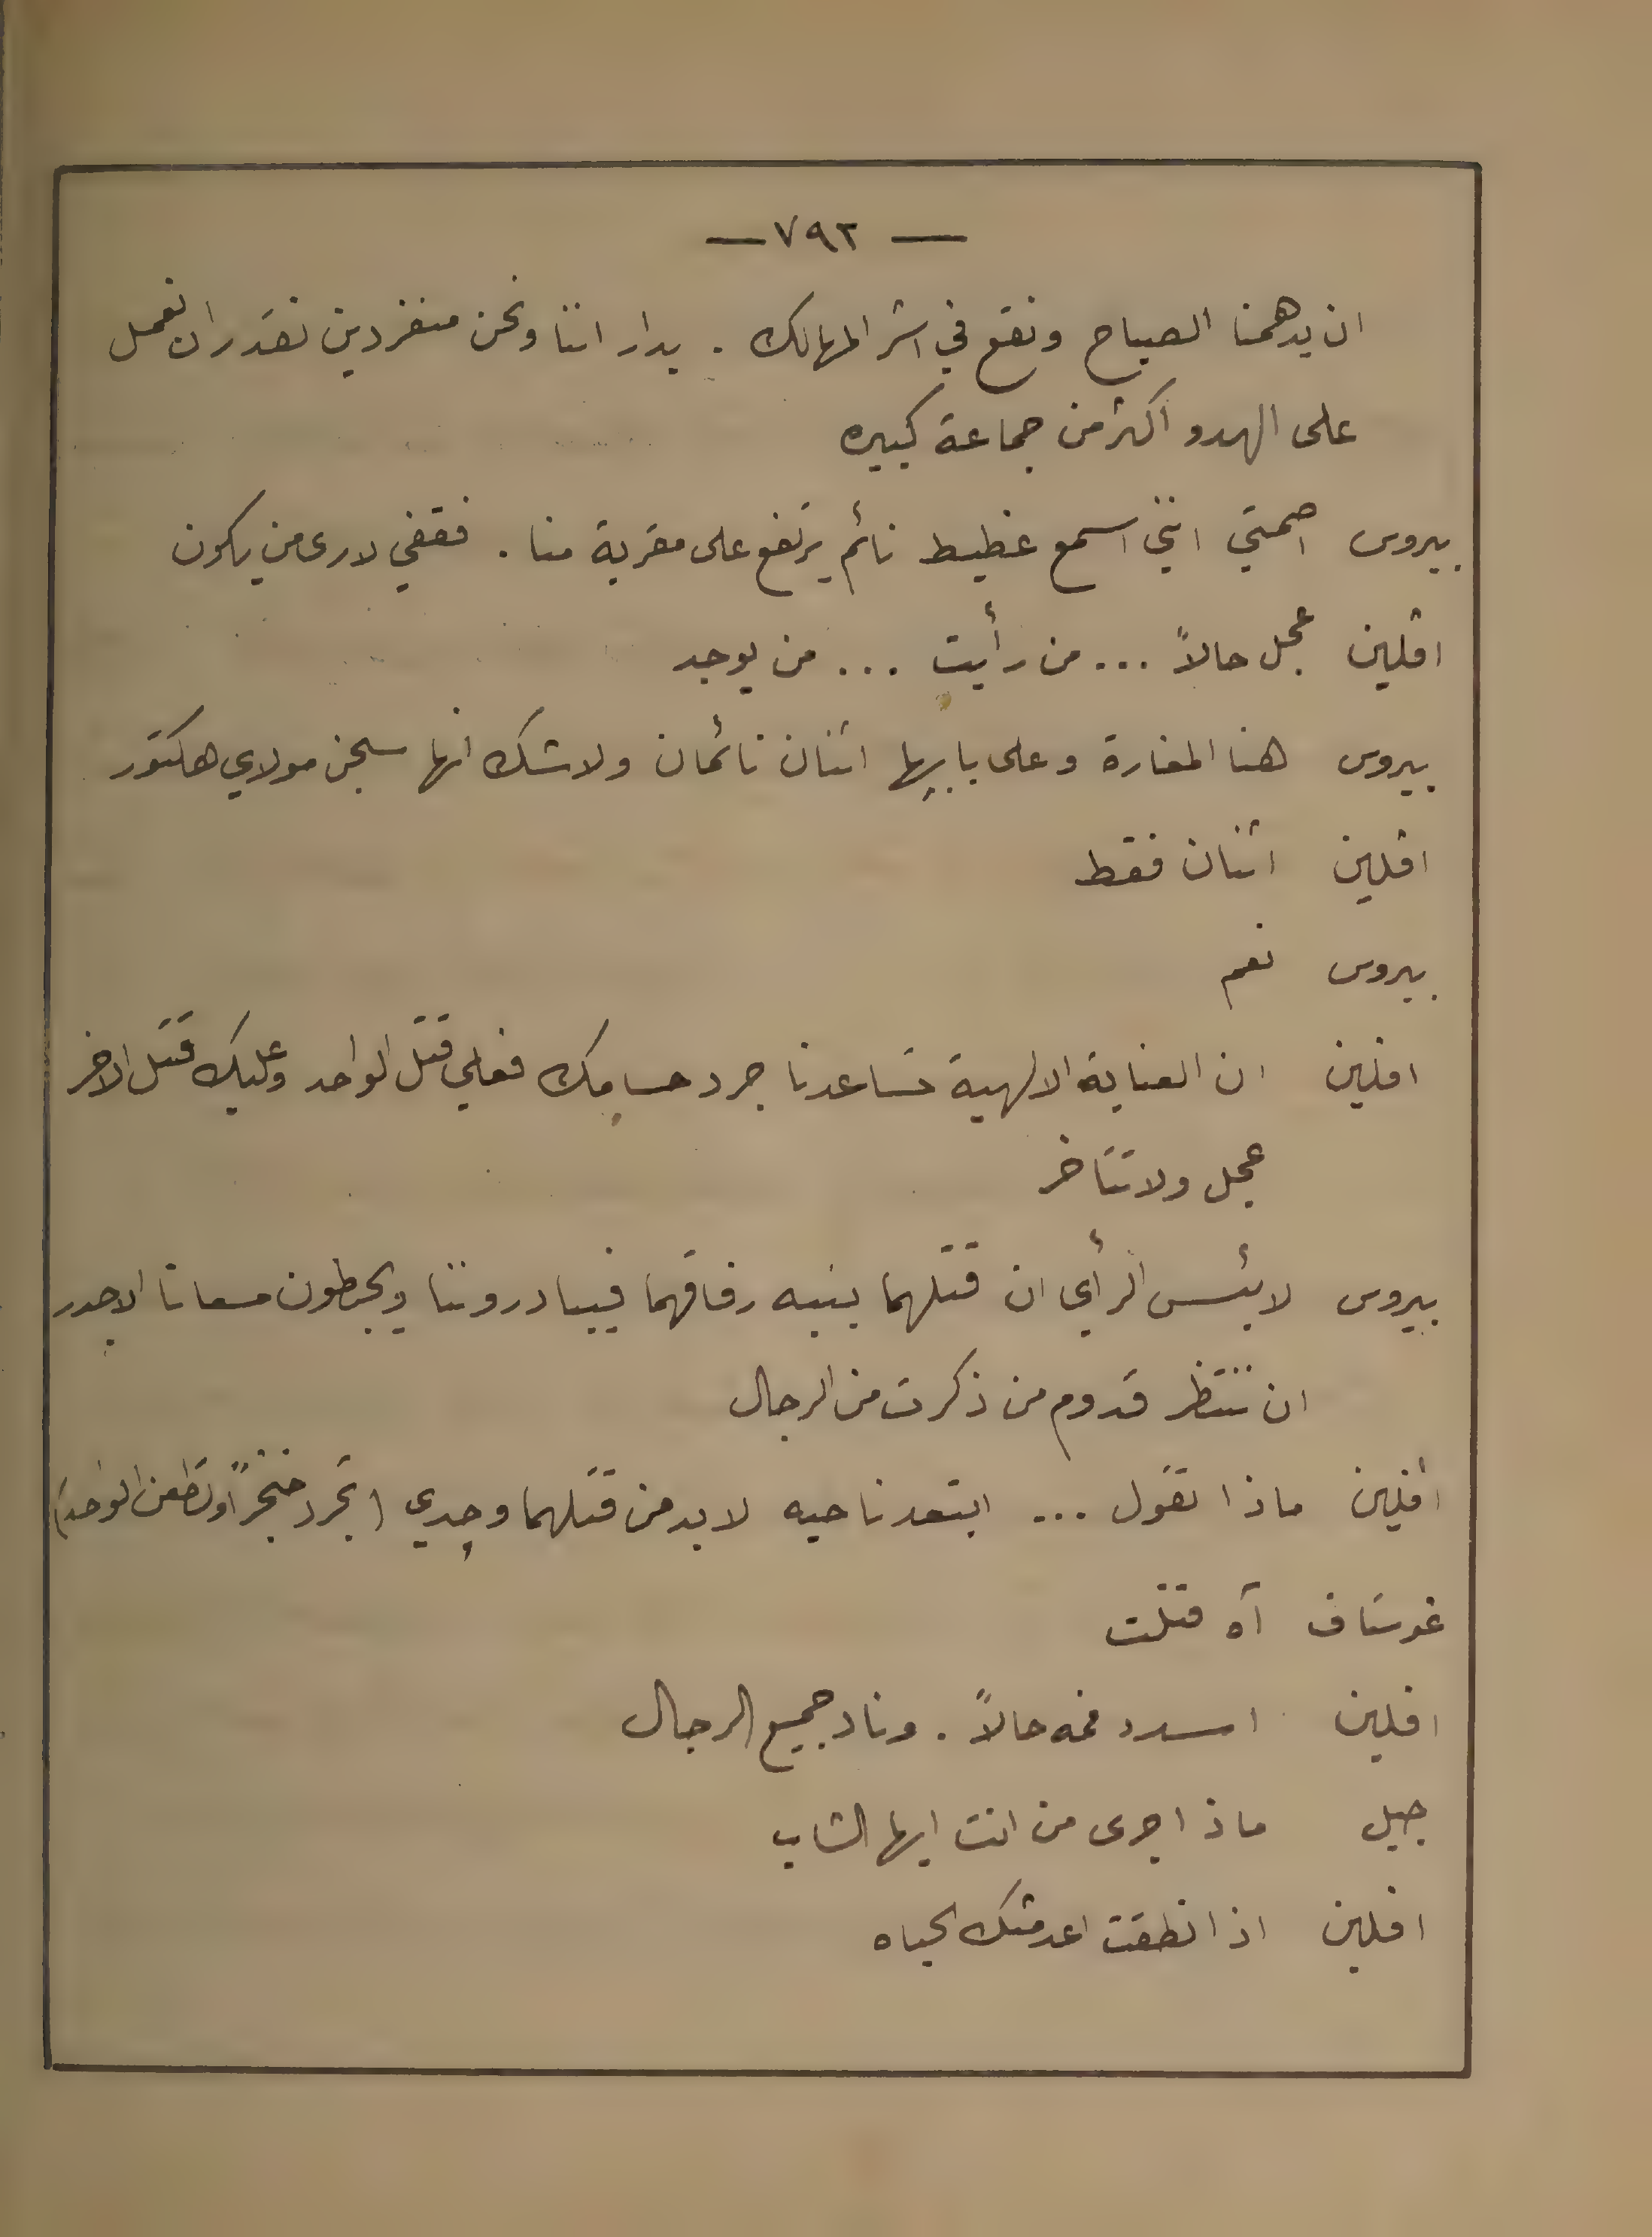 — ٧٩٢ —
ان يدهمنا الصباح ونقع في اشر المهالك . بدار اننا ونحن منفردين نقدر ان نعمل
على الهدو اكثر من جماعة كبيره
بيروس اصمتي انني اسمع غطيط نائم يرتفع على مقربة منا . فقفي لارى من يكون
افلين عجل حالاً ... من رأيت ... من يوجد
بيروس هنا المغارة وعلى بابها اثنان نائمان ولا شك انها سجن مولاي هكتور
افلين اثنان فقط
بيروس نعم
افلين ان العناية الالهية تساعدنا جرد حسامك فعلي قتل الواحد وعليك قتل الاخر
عجل ولا تتاخر
بيروس لا بئس الرأي ان قتلهما ينبه رفاقهما فيبادروننا ويحبطون مسعانا الاجدر
ان ننتظر قدوم من ذكرت من الرجال
افلين ماذا تقول ... ابتعد ناحيه لا بد من قتلهما وحدي (تجرد خنجراً وتطعن الواحد)
غوستاف آه قتلت
افلين اسدد فمه حالاً . وناد جميع الرجال
جيل ماذا جرى من انت ايها الشاب
افلين اذا نطقت اعدمتك الحياه